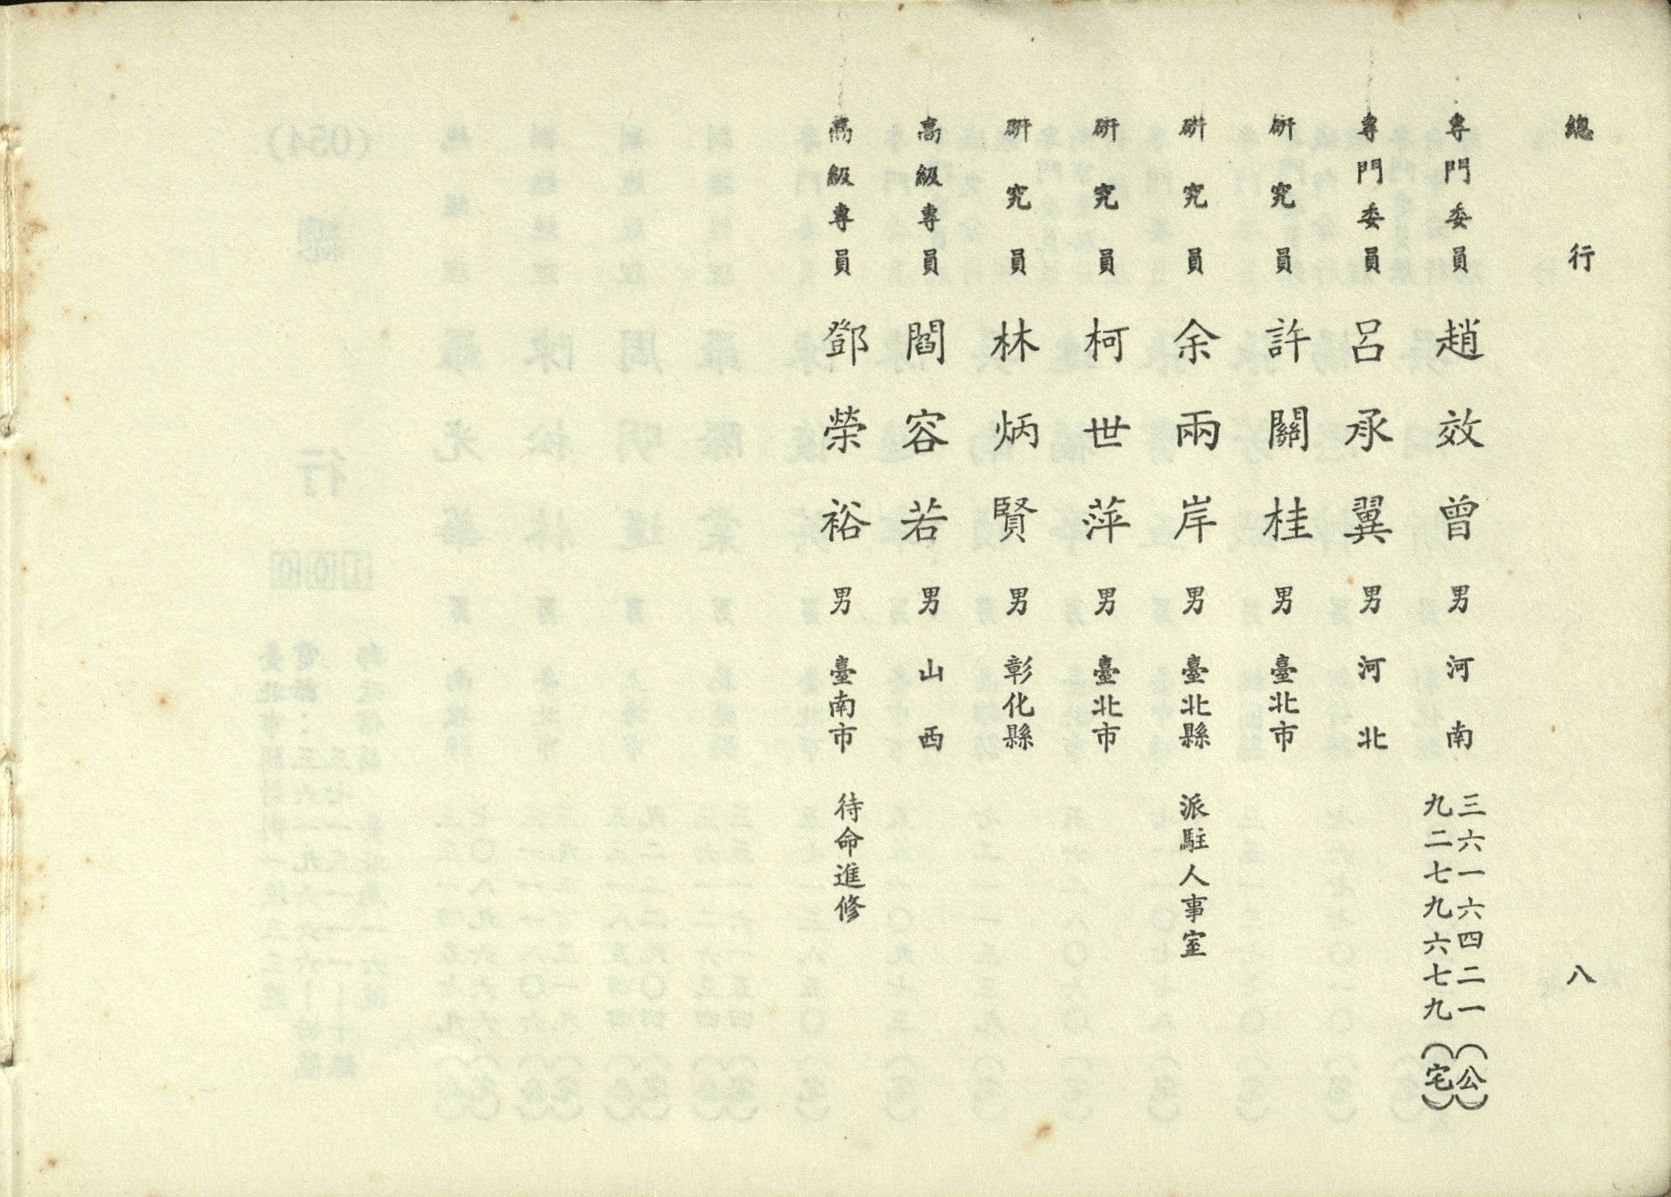 總行　八
專門委員　趙效曾　男　河南　三六一六四二一（公）
九二七九六七九（宅）
專門委員　呂承翼　男　河北
研究員　許關桂　男　臺北市
研究員　余兩岸　男　臺北縣　派駐人事室
研究員　柯世萍　男　臺北市
研究員　林炳賢　男　彰化縣
高級專員　閻容若　男　山西
高級專員　鄧榮裕　男　臺南市　待命進修